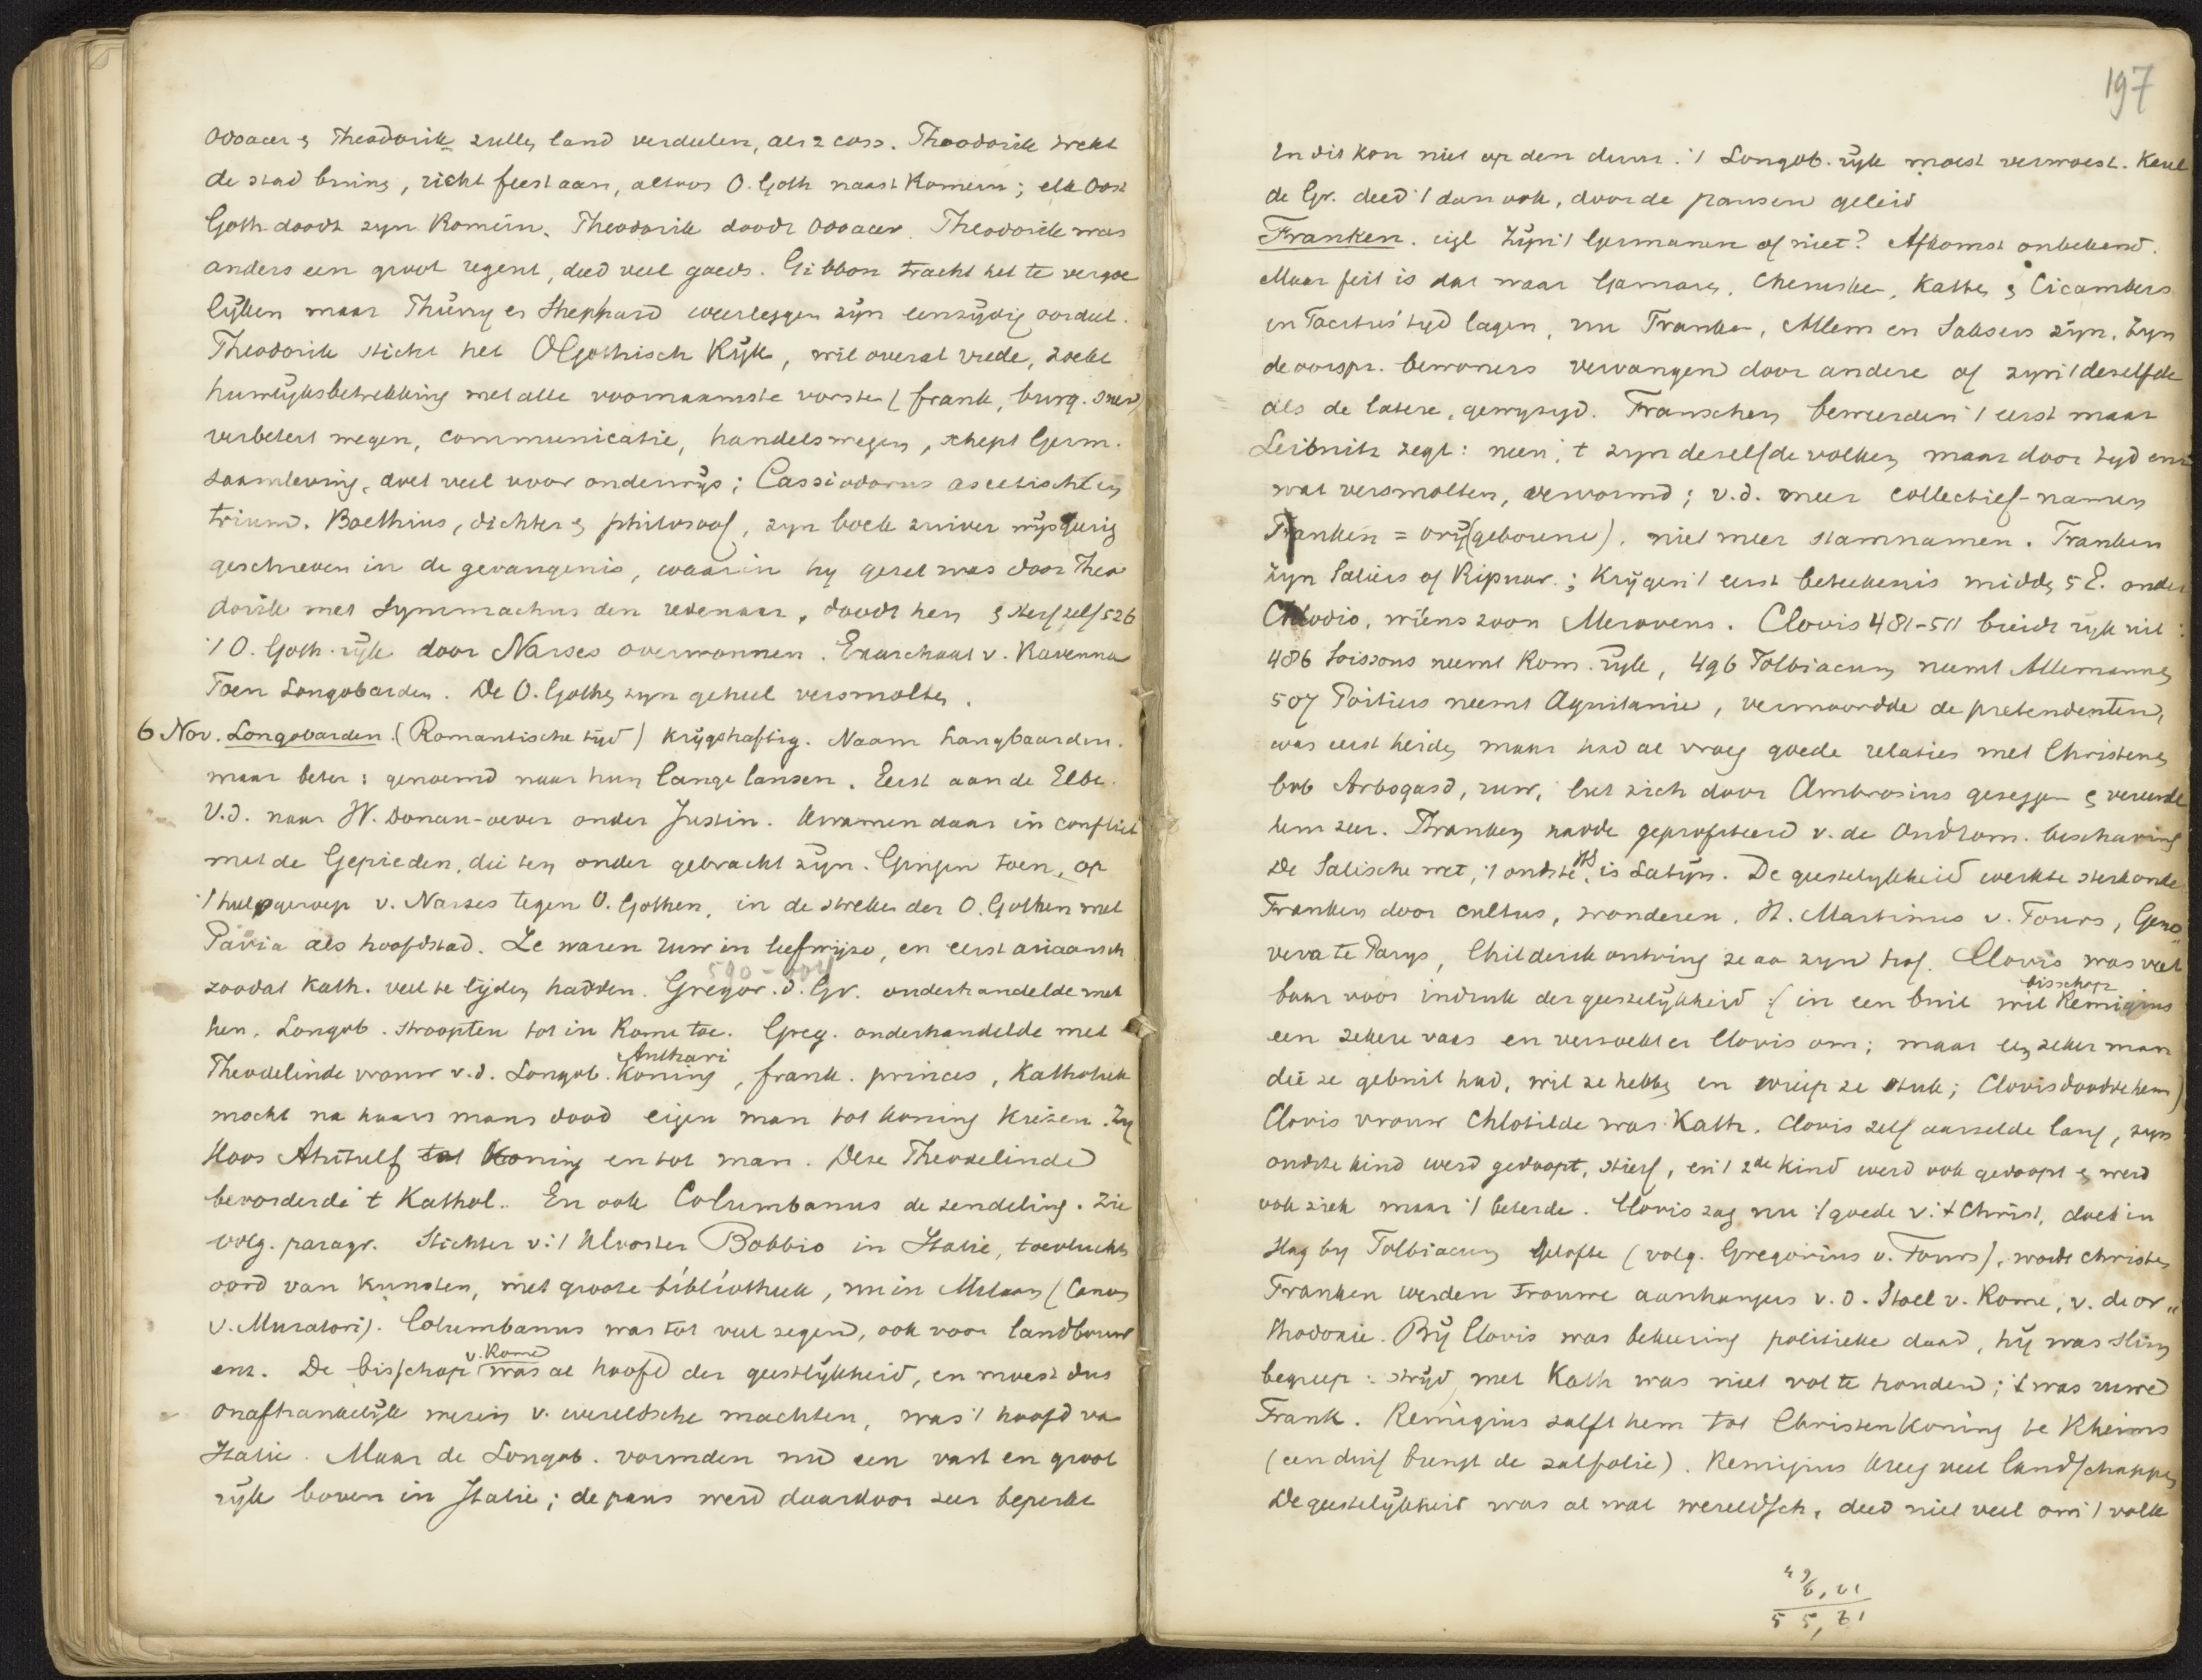 Odoacer & Theodorik zulle land verdeelen, als 2 coss. Theodorik trekt
de stad binne, richt feest aan, altoos O. Goth naast Romein; elk Oost
Goth doodt zyn Romein. Theodorik doodt Odoacer. Theodorik was
anders een groot regent, deed veel goeds. Gibbon tracht het te vergoe
lyken maar Thierry en Sheppard weerleggen zyn eenzydig oordeel.
Theodorik sticht het OGothisch Ryk, wil overal vrede, zoekt
huwlyksbetrekking met alle voornaamste vorste (frank, burg. suev)
verbetert wegen, communicatie, handelswegen, schept Germ.
saamleving, doet veel voor onderwys; Cassiodorus ascetischt
trium. Boethius, dichter & philosoof, zyn boek zuiver wysgeerig
geschreven in de gevangenis, waarin hy gezet was door Theo
dorik met Symmachus den redenaar, doodt hen & sterf zelf 526
't O. Goth. ryk door Narses overwonnen. Exarchaat v. Ravenna
Toen Longobarden. De O. Gothe zyn geheel versmolte.
6 Nov. Longobarden (Romantische tyd) krygshaftig. Naam Langbaarden.
maar beter: genoemd naar hun lange lansen. Eerst aan de Elbe.
V.d. naar W. Donau-oever onder Justin. Kwamen daar in conflict
met de Gepieden, die ten onder gebracht zyn. Gingen toen, op
't hulpgeroep v. Narses tegen O. Gothen, in de streken der O. Gothen met
Pavia als hoofdstad. Ze waren ruw in leefwijze, en eerst ariaansch
590-604
zoodat Kath. veel te lijden hadden. Gregor. d. Gr. onderhandelde met
hen. Longob. stroopten tot in Rome toe. Greg. onderhandelde met
Authari
Theodelinde vrouw v.d. Longob. Koning, frank. princes, Katholiek
mocht na haars mans dood eigen man tot koning kiezen. Zy
koos Ahitulf tot Koning en tot man. Deze Theodelinde
bevorderde 't Kathol.. En ook Columbanus de zendeling. Zie
volg. paragr. Stichter v. 't klooster Bobbio in Italie, toevluchts
oord van kunsten, met groote bibliotheek, nu in Milaan (Canon
v. Muratori). Columbanus was tot veel zegen, ook voor landbouw
v. Rome
enz. De bisschop was al hoofd der geestlykheid, en moest dus
onafhankelyk wezen v. wereldsche machten, was 't hoofd va
Italie. Maar de Longob. vormden nu een vast en groot
ryk boven in Italie; de paus werd daardoor zeer beperkt
197
En dit kon niet op den duur. 't Longob. ryk moest verwoest. Karel
de Gr. deed 't dan ook, door de pausen geleid
Franken. eigl Zyn 't Germanen of niet? Afkomst onbekend.
Maar feit is dat waar Gamare, Cheruske, Katte & Cicambers
in Tacitus' tyd lagen, nu Franke, Allem en Saksers zyn. Zyn
de oorspr. bewoners vervangen door andere of zyn 't deselfde
als de latere, gewyzigd. Franschen beweerden 't eerst maar
Leibnitz zegt: neen, 't zyn deselfde volken, maar door tyd enz
wat versmolten, vervormd; v.d. meer collectief-namen
Franken = vry(geborene), niet meer stamnamen. Franken
zyn Saliers of Ripuar.; Krygen 't eerst beteekenis midde 5 E. onder
Chlodio, wiens zoon Meroveus. Clovis 481-511 breidt ryk uit:
486 Soissons neemt Rom. ryk, 496 Tolbiacum neemt Allemanne
507 Poitiers neemt Aquitanie, vermoordde de pretendenten,
was eerst heiden maar had al vroeg goede relaties met Christene
bvb Arbogasd, ruw, liet zich door Ambrosius gezeggen & vereerde
hem zeer. Franken hadde geprofiteerd v. de Oudrom. beschaving
HS
De Salische wet, 't oudste, is Latyn. De geestelykheid werkte sterk onde
Franken door cultus, wonderen. H. Martinus v. Tours, Geno
veva te Parys, Childerik ontving ze aa zyn hof. Clovis was vat
bisschop
baar voor indruk der geestelykheid (in een buit wil Remigius
een zekere vaas en verzoekt er Clovis om; maar een zeker man
die ze gebuit had, wil ze hebbe en wierp ze stuk; Clovis doodde hem)
Clovis vrouw Chlotilde was Kath. Clovis zelf aarzelde lang, zyn
oudste kind werd gedoopt, stierf, en 't 2de kind werd ook gedoopt & werd
ook ziek maar 't beterde. Clovis zag nu 't goede v. 't Christ, doet in
slag by Tolbiacum gelofte (volg. Gregorius v. Tours), wordt Christen
Franken werden trouwe aanhangers v. d. Stoel v. Rome, v. de or„
thodoxie. By Clovis was bekeering politieke daad, hy was slim
begreep: stryd met Kath was niet vol te houden; 't was ruwe
Frank. Remigius zalft hem tot Christenkoning te Rheims
(een duif brengt de zalfolie). Remigius kreeg veel landschappen
De geestelykheid was al wat wereldsch, deed niet veel om 't volk
55,61